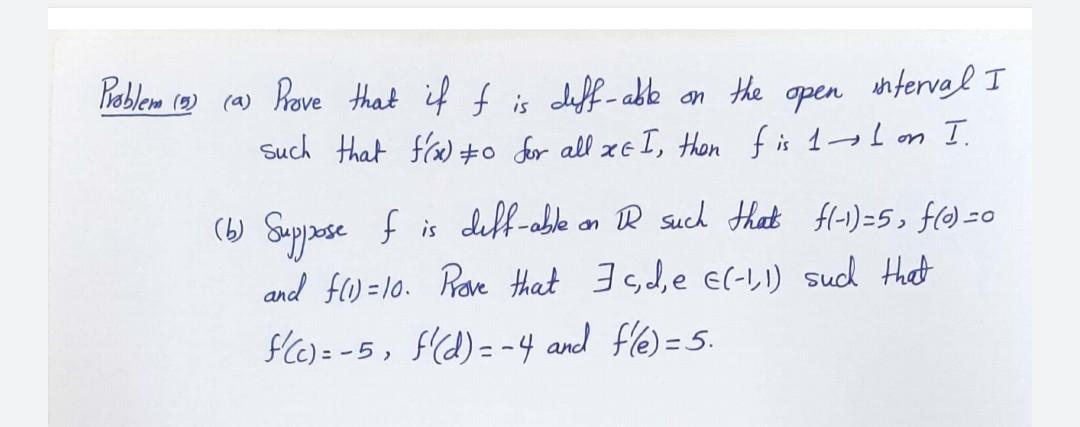 Problem (5) (a) Prove that if f is diff-able on the open interval I
such that f'(x) ≠ 0 for all x ∈ I, then f is 1→1 on I.
(b) Suppose f is diff-able on ℝ such that f(-1)=5, f(0)=0
and f(1)=10. Prove that ∃ c,d,e ∈(-1,1) such that
f'(c)=-5, f'(d)=-4 and f'(e)=5.